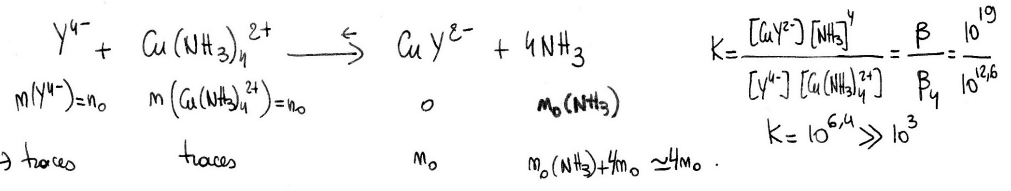 Y⁴⁻ + Cu(NH₃)₄²⁺ ⇄ CuY²⁻ + 4NH₃
K = [CuY²⁻][NH₃]⁴ / [Y⁴⁻][Cu(NH₃)₄²⁺] = β / β₄ = 10¹⁹ / 10¹²,⁶
n(Y⁴⁻)=n₀ n(Cu(NH₃)₄²⁺)=n₀ 0 n₀(NH₃)
K = 10⁶,⁴ ≫ 10³
→ traces traces n₀ n₀(NH₃)+4n₀ ≃4n₀.